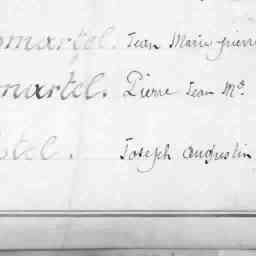 martel. Jean Marie pierre
martel. Pierre Jean M^e.
tel. Joseph augustin